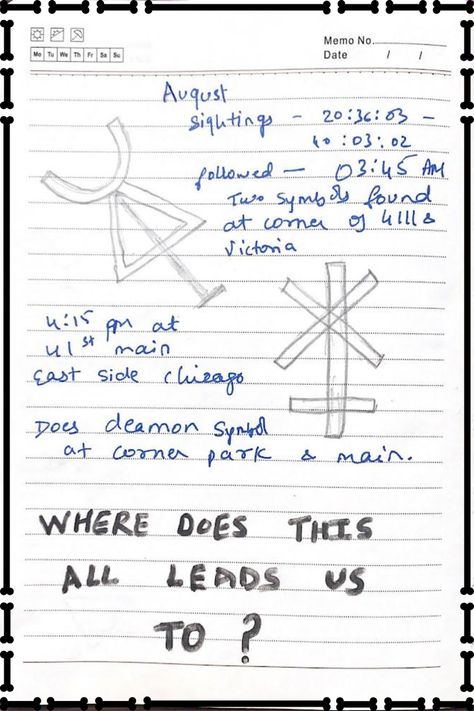 Memo No.
Mo Tu We Th Fr Sa Su
Date / /
August
Sightings - 20:36:03 -
40:03:02
followed - 03:45 AM
Two symbols found
at corner of 4111 &
Victoria
4:15 pm at
41st main
East side Chicago
Does deamon symbol
at corner park & main.
WHERE DOES THIS
ALL LEADS US
TO?